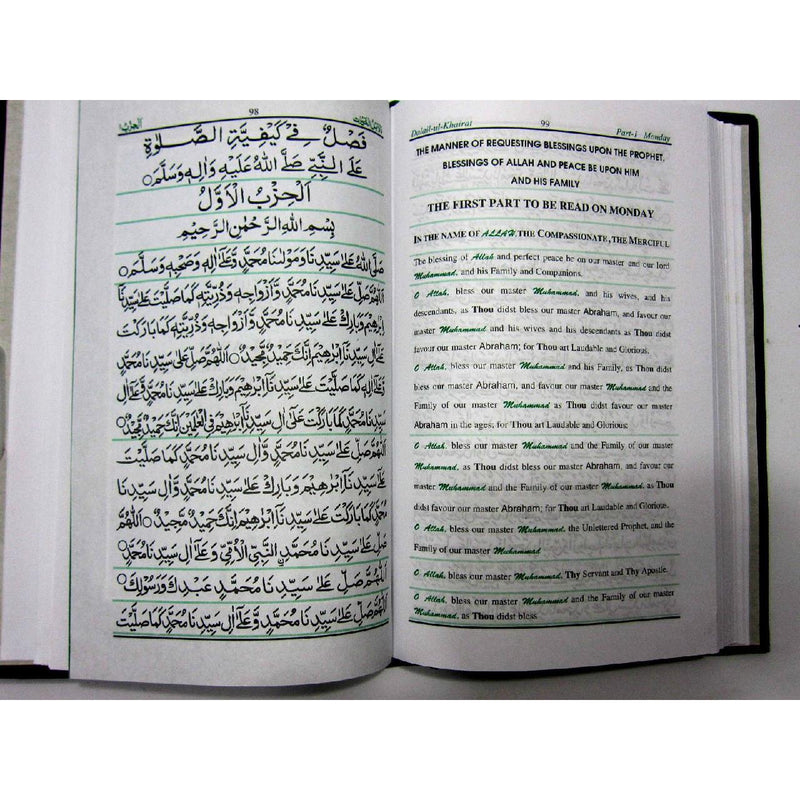 98
فَصْلٌ فِيْ كَيْفِيَّةِ الصَّلٰوةِ
عَلَى النَّبِيِّ صَلَّى اللهُ عَلَيْهِ وَاٰلِهٖ وَسَلَّمَ
اَلْحِزْبُ الْاَوَّلُ
بِسْمِ اللهِ الرَّحْمٰنِ الرَّحِيْمِ
صَلَّى اللهُ عَلٰى سَيِّدِنَا وَمَوْلٰنَا مُحَمَّدٍ وَّعَلٰٓى اٰلِهٖ وَصَحْبِهٖ وَسَلَّمَ
اَللّٰهُمَّ صَلِّ عَلٰى سَيِّدِنَا مُحَمَّدٍ وَّاَزْوَاجِهٖ وَذُرِّيَّتِهٖ كَمَا صَلَّيْتَ عَلٰى سَيِّدِنَآ
اِبْرٰهِيْمَ وَبَارِكْ عَلٰى سَيِّدِنَا مُحَمَّدٍ وَّاَزْوَاجِهٖ وَذُرِّيَّتِهٖ كَمَا بَارَكْتَ
عَلٰٓى اٰلِ سَيِّدِنَآ اِبْرٰهِيْمَ اِنَّكَ حَمِيْدٌ مَّجِيْدٌ اَللّٰهُمَّ صَلِّ عَلٰى سَيِّدِنَا مُحَمَّدٍ
وَّعَلٰٓى اٰلِهٖ كَمَا صَلَّيْتَ عَلٰى سَيِّدِنَآ اِبْرٰهِيْمَ وَبَارِكْ عَلٰى سَيِّدِنَا مُحَمَّدٍ وَّعَلٰٓى اٰلِ
سَيِّدِنَا مُحَمَّدٍ كَمَا بَارَكْتَ عَلٰٓى اٰلِ سَيِّدِنَآ اِبْرٰهِيْمَ فِي الْعٰلَمِيْنَ اِنَّكَ حَمِيْدٌ مَّجِيْدٌ
اَللّٰهُمَّ صَلِّ عَلٰى سَيِّدِنَا مُحَمَّدٍ وَّاٰلِ سَيِّدِنَا مُحَمَّدٍ كَمَا صَلَّيْتَ
عَلٰى سَيِّدِنَآ اِبْرٰهِيْمَ وَبَارِكْ عَلٰى سَيِّدِنَا مُحَمَّدٍ وَّاٰلِ سَيِّدِنَا
مُحَمَّدٍ كَمَا بَارَكْتَ عَلٰى سَيِّدِنَآ اِبْرٰهِيْمَ اِنَّكَ حَمِيْدٌ مَّجِيْدٌ اَللّٰهُمَّ
صَلِّ عَلٰى سَيِّدِنَا مُحَمَّدِ النَّبِيِّ الْاُمِّيِّ وَعَلٰٓى اٰلِ سَيِّدِنَا مُحَمَّدٍ
اَللّٰهُمَّ صَلِّ عَلٰى سَيِّدِنَا مُحَمَّدٍ عَبْدِكَ وَرَسُوْلِكَ
اَللّٰهُمَّ صَلِّ عَلٰى سَيِّدِنَا مُحَمَّدٍ وَّعَلٰٓى اٰلِ سَيِّدِنَا مُحَمَّدٍ كَمَا صَلَّيْتَ
Dalail-ul-Khairat 99 Part-i Monday
THE MANNER OF REQUESTING BLESSINGS UPON THE PROPHET,
BLESSINGS OF ALLAH AND PEACE BE UPON HIM
AND HIS FAMILY
THE FIRST PART TO BE READ ON MONDAY
IN THE NAME OF ALLAH, THE COMPASSIONATE, THE MERCIFUL
The blessing of Allah and perfect peace be on our master and our lord
Muhammad, and his Family and Companions.
O Allah, bless our master Muhammad, and his wives, and his
descendants, as Thou didst bless our master Abraham, and favour our
master Muhammad and his wives and his descendants as Thou didst
favour our master Abraham; for Thou art Laudable and Glorious.
O Allah, bless our master Muhammad and his Family, as Thou didst
bless our master Abraham, and favour our master Muhammad and the
Family of our master Muhammad as Thou didst favour our master
Abraham in the ages; for Thou art Laudable and Glorious:
O Allah, bless our master Muhammad and the Family of our master
Muhammad, as Thou didst bless our master Abraham, and favour our
master Muhammad and the Family of our master Muhammad, as Thou
didst favour our master Abraham; for Thou art Laudable and Glorious.
O Allah, bless our master Muhammad, the Unlettered Prophet, and the
Family of our master Muhammad
O Allah, bless our master Muhammad, Thy Servant and Thy Apostle.
O Allah, bless our master Muhammad and the Family of our master
Muhammad, as Thou didst bless